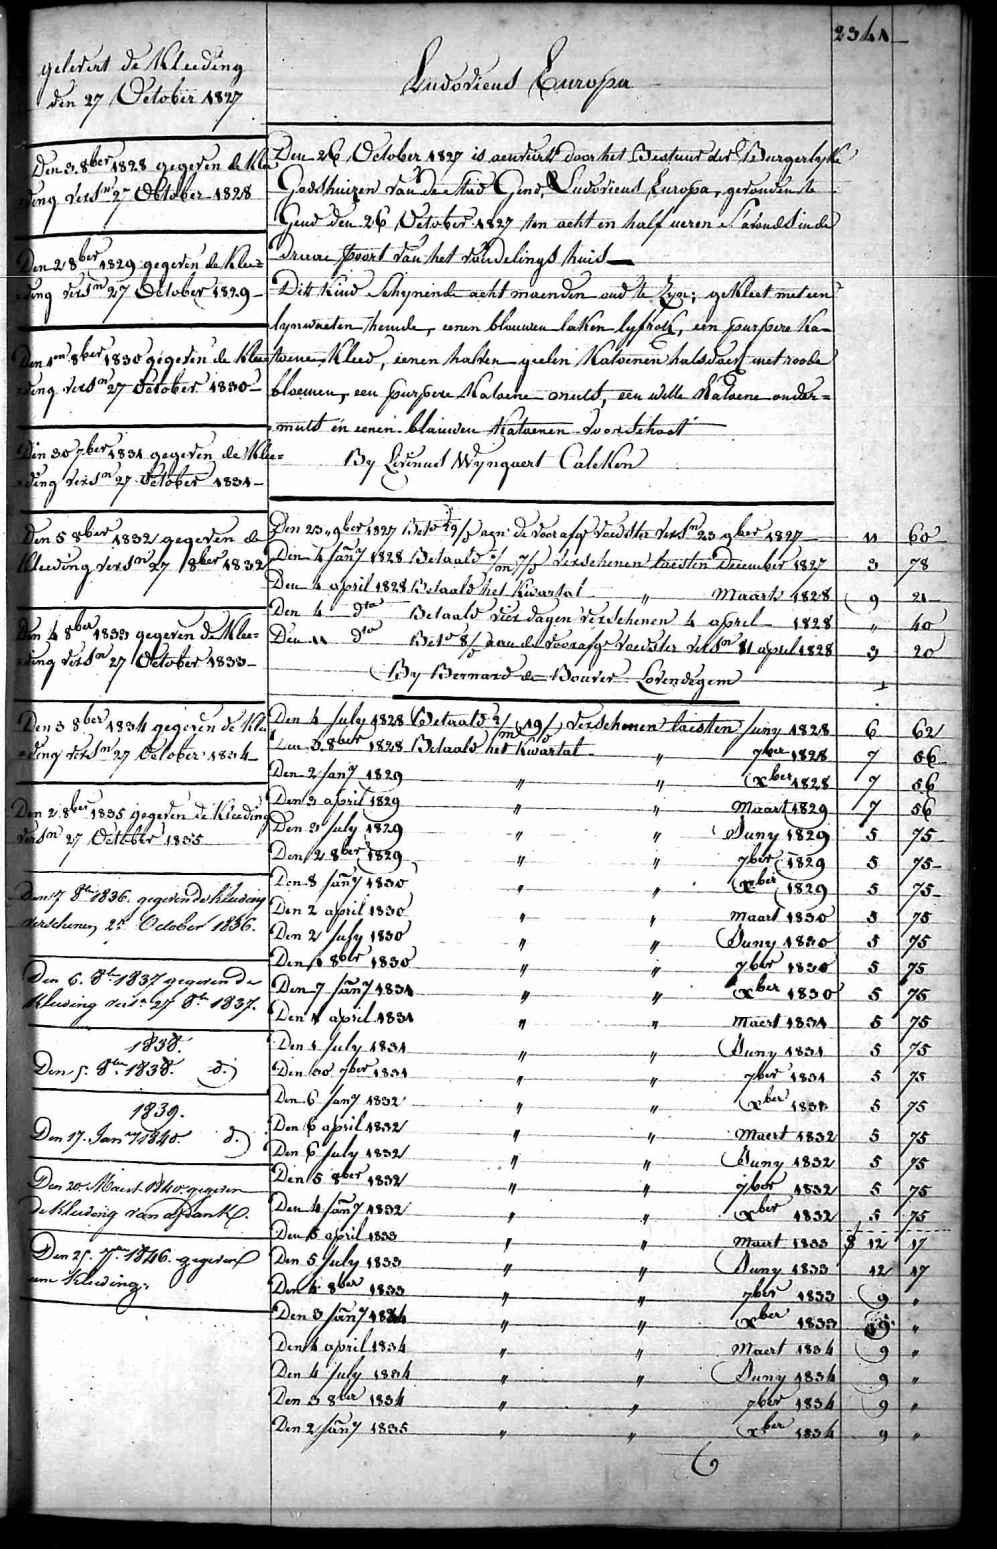 2341
gelevert de Kleeding
den 27 October 1827
Den 3 8ber 1828 gegeven de Klee
ding versn 27 October 1828
Den 2 8ber 1829 gegeven de Klee=
ding versn 27 October 1829
Den 1en 8ber 1830 gegeven de Klee
ding versn 27 October 1830
Den 30 7ber 1831 gegeven de Klee=
ding versn 27 October 1831
Den 5 8ber 1832 gegeven de
Kleeding versn 27 8ber 1832
Den 4 8ber 1833 gegeven de Klee=
ding versn 27 October 1833
Den 3 8ber 1834 gegeven de Klee
ding versn 27 October 1834
Den 2 8ber 1835 gegeven de Kleeding
versn 27 October 1835
Den 7 8br 1836 gegeven de Kleeding
verschenen 27 October 1836.
Den 6. 8br 1837 gegeven de
Kleeding versn 27 8br 1837.
1838.
Den 5. 8bre 1838. d.)
1839.
Den 17. Jany 1840 d.)
Den 20 Maert 1840 gegeven
de Kleeding van afdank.
Den 25. 7br 1846. gegeven
een Kleeding.
Ludovicus Europa
Den 26 October 1827 is aenveirt door het Bestuur der Burgerlyke
Godshuizen van de Stad Gend, Ludovicus Europa, gevonden te
Gend den 26 October 1827 ten acht en half ueren s'avonds in de
Draai poort van het vondelings huis
Dit Kind Schynende acht maenden oud te zyn; gekleet met een
lynwaeten hemde, eenen blauwen laken lyfrok, een purpere Ka=
toene Kleed, eenen halven geelen Katoenen halsdoek met roode
bloemen, een purpere Katoene muts, een witte Katoene onder=
muts en eenen blauwen Katoenen voorschoot
By Livinus Wyngaert Calcken
Den 23 9ber 1827 Bet aen de voorafge voedster versn 23 9ber 1827 11 60
Den 4 Jany 1828 Betaald verschenen laesten December 1827 3 78
Den 4 april 1828 Betaald het Kwartal " Maart 1828 9 21
Den 4 dto Betaald vier dagen verschenen 4 april 1828 " 40
Den 11 dto Bet aan de voorafge voedster versn 11 april 1828 3 20
By Bernard de Bouver Lovendegem
Den 4 July 1828 Betaald verschenen laesten Juny 1828 6 62
Den 3 8ber 1828 Betaald het Kwartal " 7ber 1828 7 56
Den 2 Jany 1829 " " Xber 1828 7 56
Den 3 april 1829 " " Maart 1829 7 56
Den 3 July 1829 " " Juny 1829 5 75
Den 2 8ber 1829 " " 7ber 1829 5 75
Den 8 Jany 1830 " " Xber 1829 5 75
Den 2 april 1830 " " maart 1830 5 75
Den 2 July 1830 " " Juny 1830 5 75
Den 1 8ber 1830 " " 7ber 1830 5 75
Den 7 Jany 1831 " " Xber 1830 5 75
Den 1 april 1831 " " maert 1831 5 75
Den 1 July 1831 " " Juny 1831 5 75
Den 30 7ber 1831 " " 7ber 1831 5 75
Den 6 Jany 1832 " " Xber 1831 5 75
Den 6 april 1832 " " Maert 1832 5 75
Den 6 July 1832 " " Juny 1832 5 75
Den 5 8ber 1832 " " 7ber 1832 5 75
Den 4 Jany 1832 " " Xber 1832 5 75
Den 5 april 1833 " " Maert 1833 12 17
Den 5 July 1833 " " Juny 1833 12 17
Den 4 8ber 1833 " " 7ber 1833 9 "
Den 3 Jany 1834 " " Xber 1833 9 "
Den 4 april 1834 " " Maert 1834 9 "
Den 4 July 1834 " " Juny 1834 9 "
Den 3 8ber 1834 " " 7ber 1834 9 "
Den 2 Jany 1835 " " Xber 1834 9 "